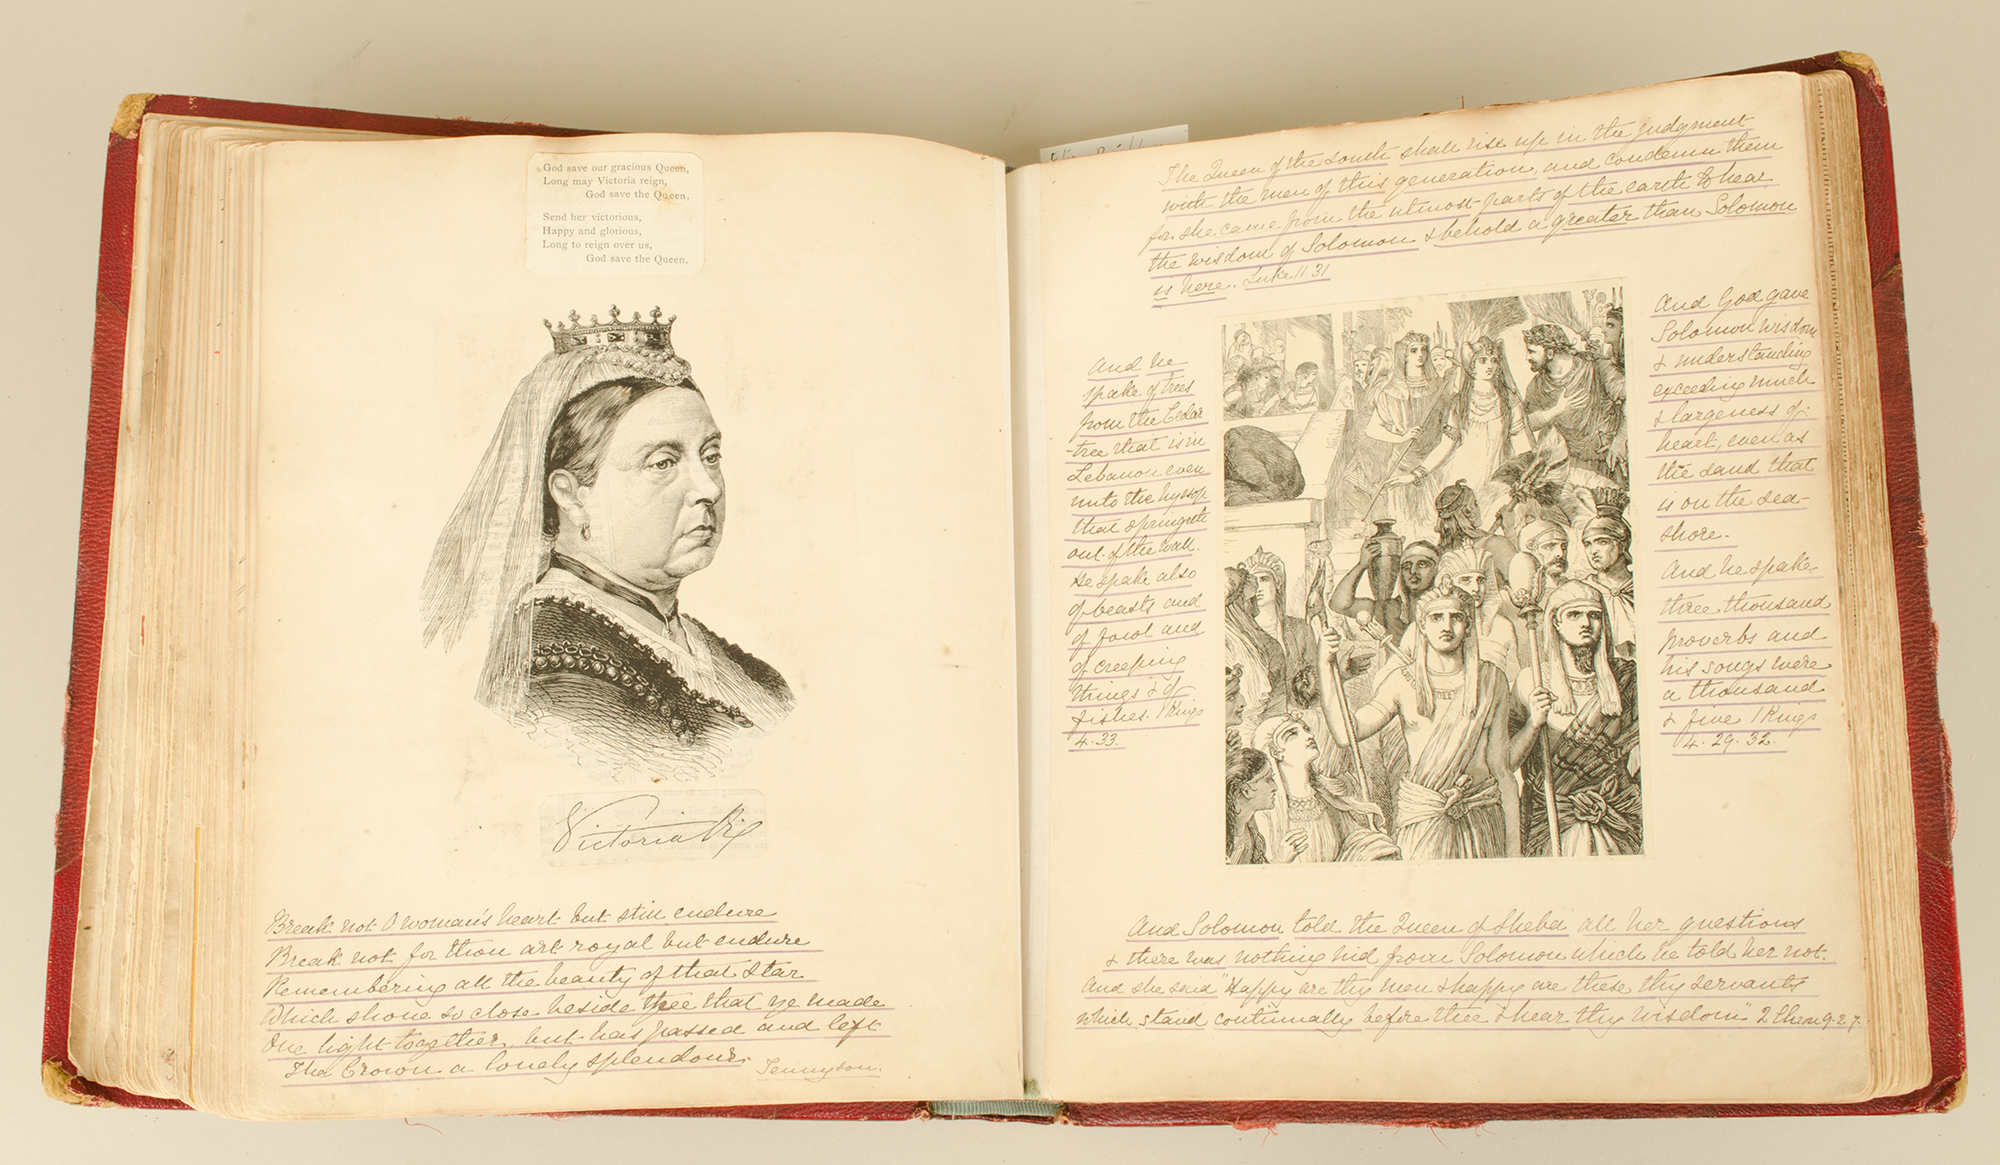 God save our gracious Queen,
Long may Victoria reign,
God save the Queen.
Send her victorious,
Happy and glorious,
Long to reign over us,
God save the Queen.
Victoria R
Break not O woman's heart but still endure
Break not for thou art royal but endure
Remembering all the beauty of that star
Which shone so close beside thee that ye made
One light together, but has passed and left
The Crown a lonely splendour.
Tennyson.
The Queen of the South shall rise up in the judgment
with the men of this generation, and condemn them
for she came from the utmost parts of the earth to hear
the wisdom of Solomon & behold a greater than Solomon
is here. Luke 11 31
And he
spake of trees
from the Cedar
-tree that is in
Lebanon even
unto the hyssop
that springeth
out of the wall.
He spake also
of beasts and
of fowl and
of creeping
things & of
fishes. 1 Kings
4.33.
And God gave
Solomon wisdom
& understanding
exceeding much
& largeness of
heart, even as
the sand that
is on the sea-
shore.
And he spake
three thousand
proverbs and
his songs were
a thousand
& five 1 Kings
4. 29. 32.
And Solomon told the Queen of Sheba all her questions
& there was nothing hid from Solomon which he told her not.
And she said "Happy are thy men & happy are these thy servants
which stand continually before thee & hear thy wisdom" 2 Chron 9. 2. 7.